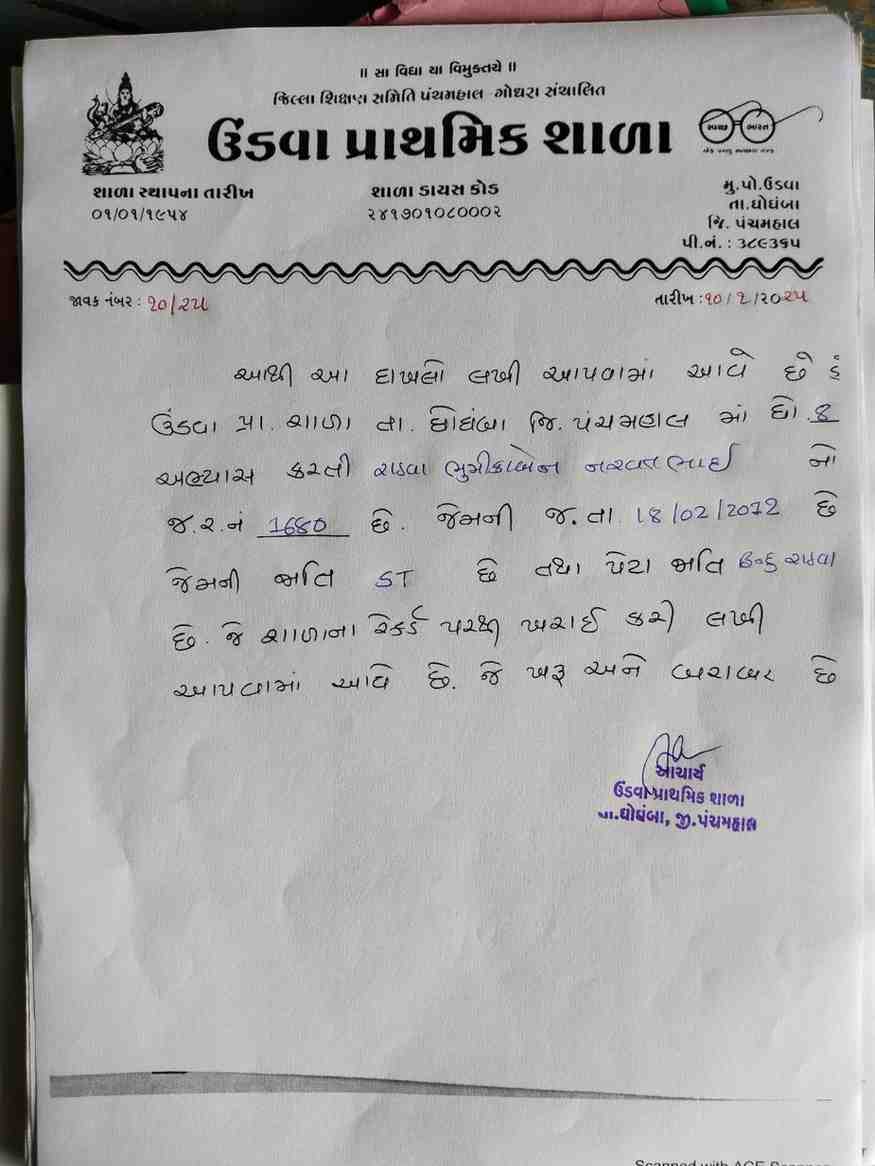 ॥ સા વિદ્યા યા વિમુક્તયે ॥
જિલ્લા શિક્ષણ સમિતિ પંચમહાલ - ગોધરા સંચાલિત
ઉંડવા પ્રાથમિક શાળા
સ્વચ્છ ભારત
શાળા સ્થાપના તારીખ
૦૧/૦૧/૧૯૫૪
શાળા ડાયસ કોડ
૨૪૧૭૦૧૦૮૦૦૦૨
મુ.પો.ઉંડવા
તા.ઘોઘંબા
જિ. પંચમહાલ
પી.નં. : ૩૮૯૩૬૫
જાવક નંબર : ૧૦/૨૫
તારીખ : ૧૦/૨/૨૦૨૫
આથી આ દાખલો લખી આપવામાં આવે છે કે
ઉંડવા પ્રા. શાળા તા. ઘોઘંબા જિ. પંચમહાલ માં ધો. 8
અભ્યાસ કરતી રાઠવા ભુમીકાબેન નરવતભાઈ નો
જ.ર.નં 1680 છે. જેમની જ. તા. 18/02/2012 છે
જેમની જાતિ ST છે તથા પેટા જાતિ હિન્દુ રાઠવા
છે. જે શાળાના રેકર્ડ પરથી ખરાઈ કરી લખી
આપવામાં આવે છે. જે ખરૂ અને બરાબર છે
આચાર્ય
ઉંડવા પ્રાથમિક શાળા
તા.ઘોઘંબા, જી.પંચમહાલ